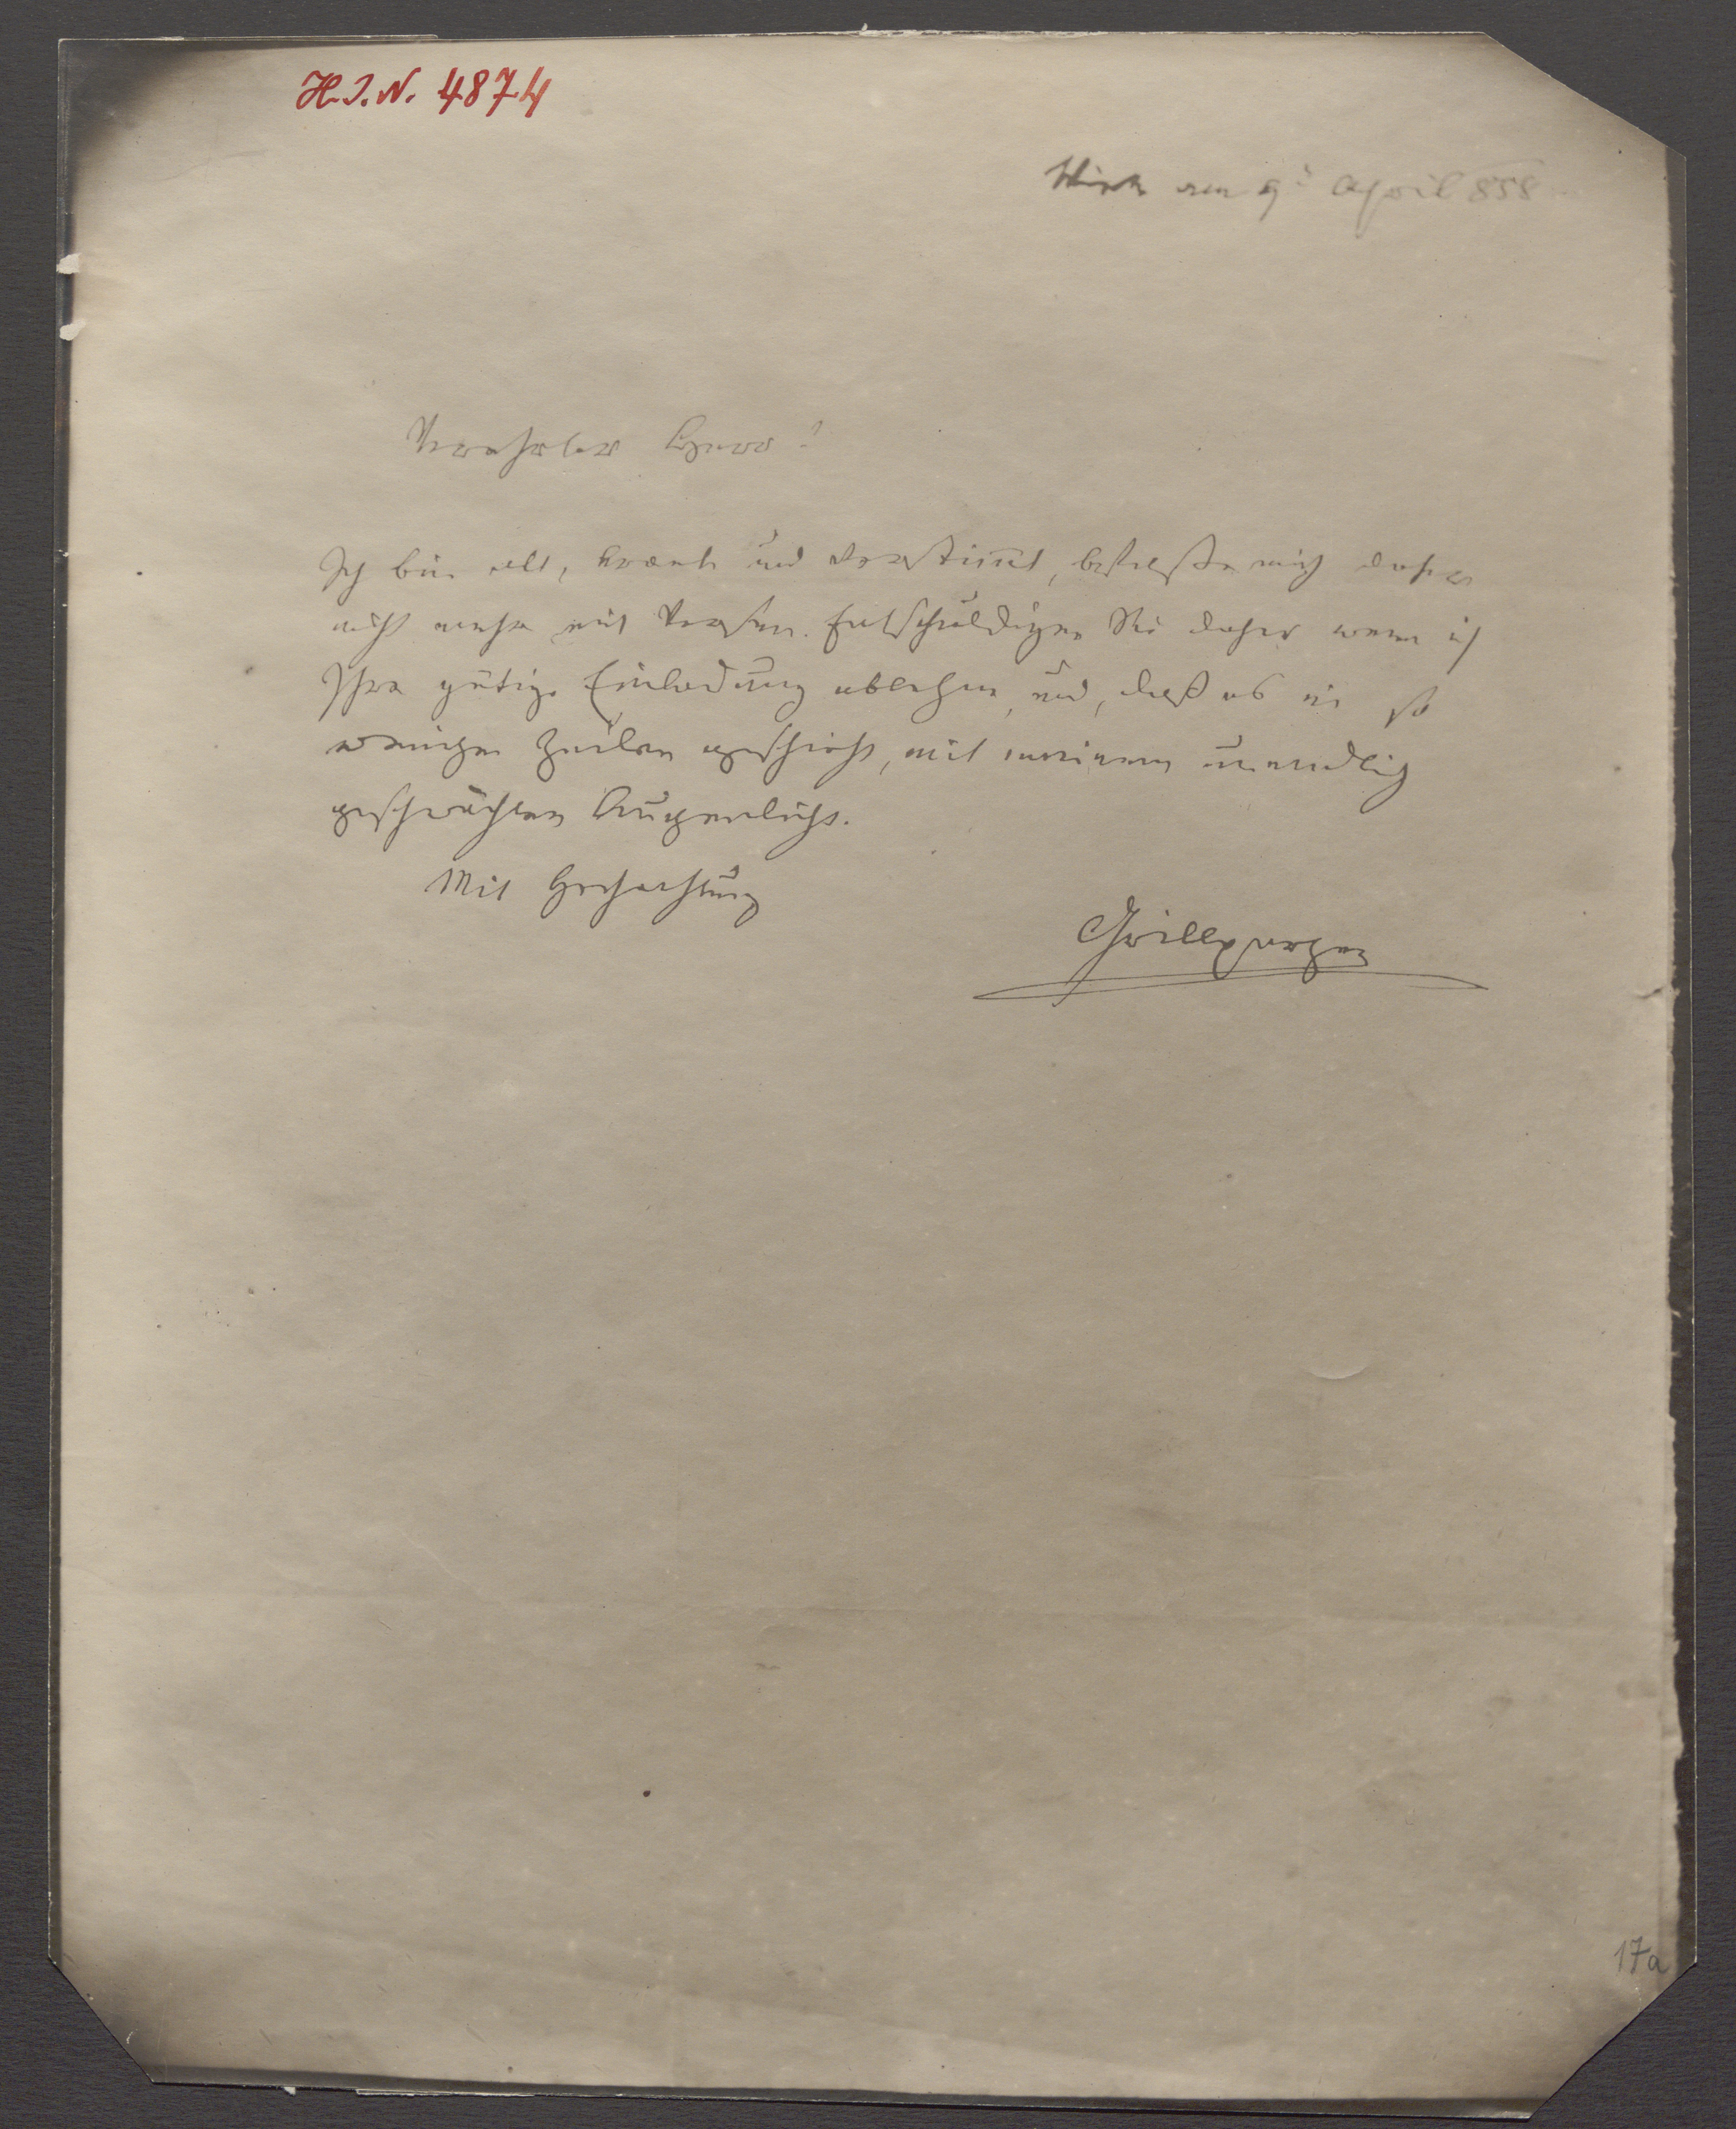 H.I.N. 4874
Wien am 9t April 858
Verehrter Herr!
Ich bin alt, krank und verstimt, befasse mich daher
nicht mehr mit Versen. Entschuldigen Sie daher wenn ich
Ihre gütige Einladung ablehne, und, daß es in so
wenigen Zeilen geschieht, mit meinem unendlich
geschwächten Augenlicht.
Mit Hochachtung
Grillparzer
17a